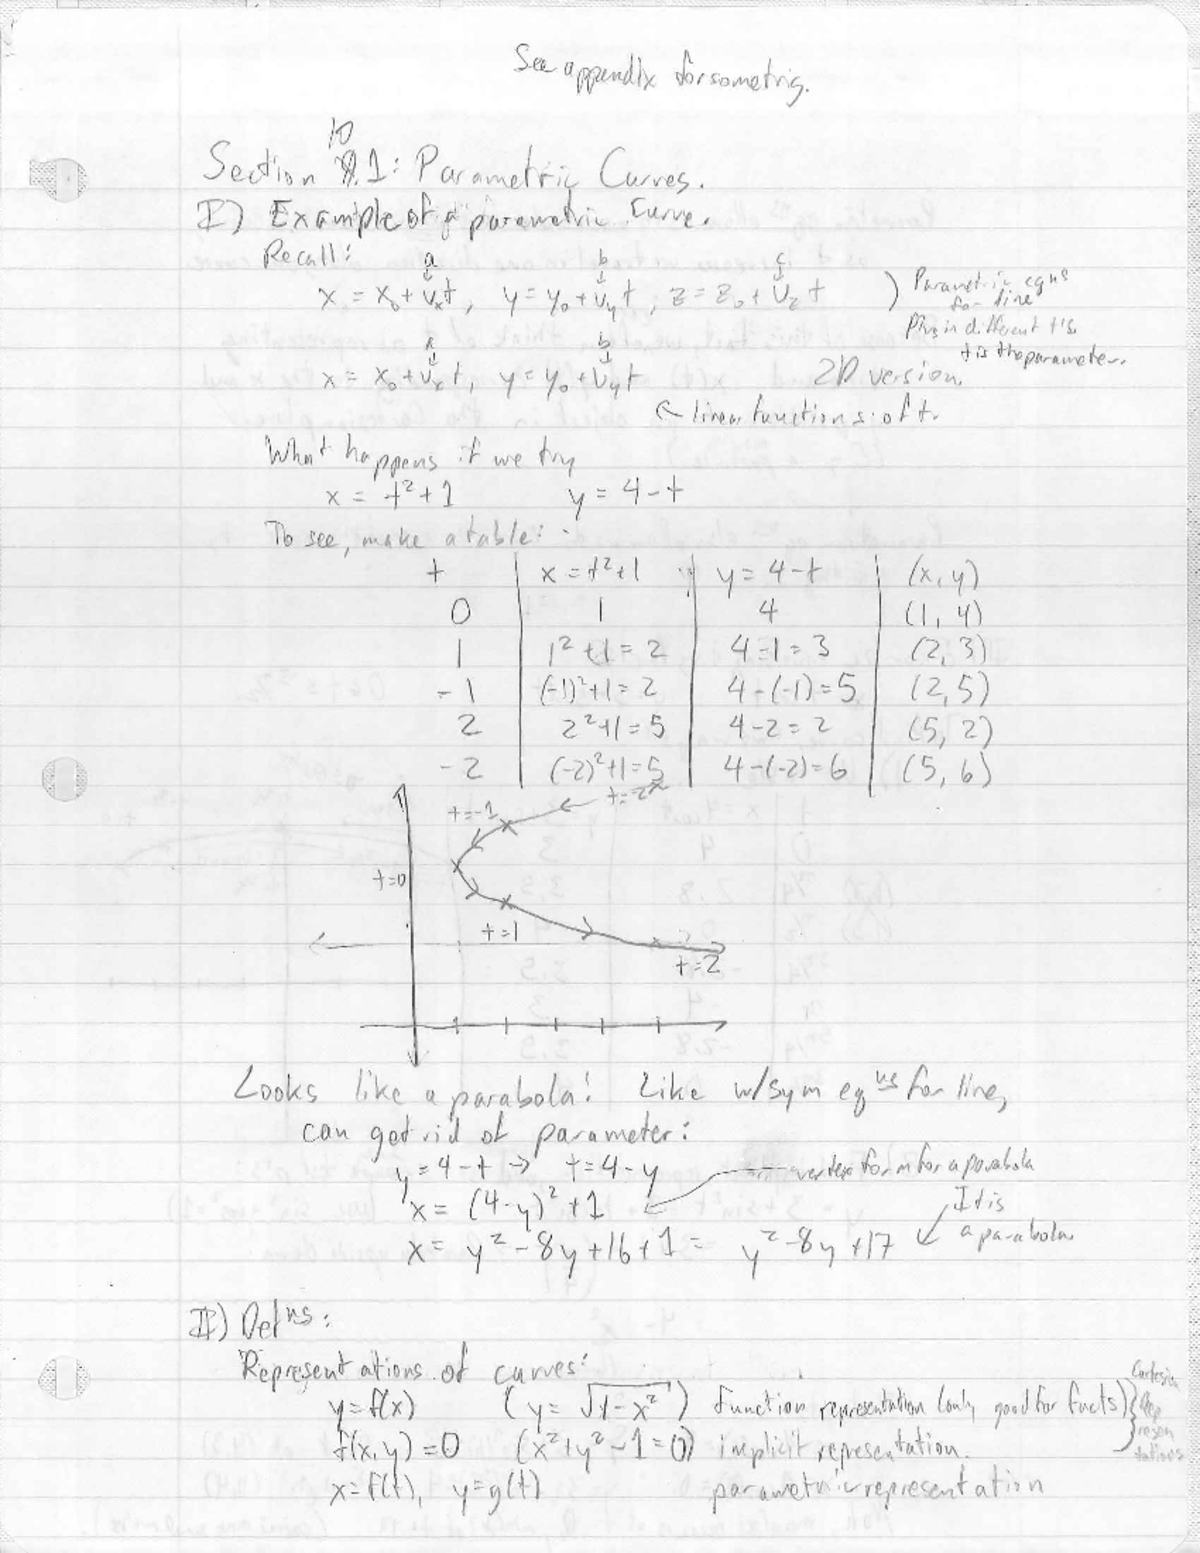 See appendix for some trig.
10
Section 9.1: Parametric Curves.
I) Example of a parametric curve.
Recall:
a b c
x = x₀ + vₓt, y = y₀ + v_y t, z = z₀ + v_z t ) Parametric eqns for line
Plug in different t's.
t is the parameter.
a b
x = x₀ + vₓt, y = y₀ + v_y t 2D version.
← linear functions of t.
What happens if we try
x = t² + 1 y = 4 - t
To see, make a table:
t | x = t²+1 | y = 4-t | (x, y)
0 | 1 | 4 | (1, 4)
1 | 1² + 1 = 2 | 4-1 = 3 | (2, 3)
-1 | (-1)²+1 = 2 | 4-(-1) = 5 | (2, 5)
2 | 2²+1 = 5 | 4-2 = 2 | (5, 2)
-2 | (-2)²+1 = 5 | 4-(-2) = 6 | (5, 6)
t=-2
t=-1
t=0
t=1
t=2
Looks like a parabola! Like w/ sym eqns for line,
can get rid of parameter:
y = 4 - t → t = 4 - y
x = (4-y)² + 1 ← vertex form for a parabola
x = y² - 8y + 16 + 1 = y² - 8y + 17 ↙ It is a parabola.
II) Defns:
Representations of curves:
y = f(x) (y = √1-x²) function representation (only good for functs)
f(x, y) = 0 (x² + y² - 1 = 0) implicit representation.
} Cartesian Representations
x = f(t), y = g(t) parametric representation